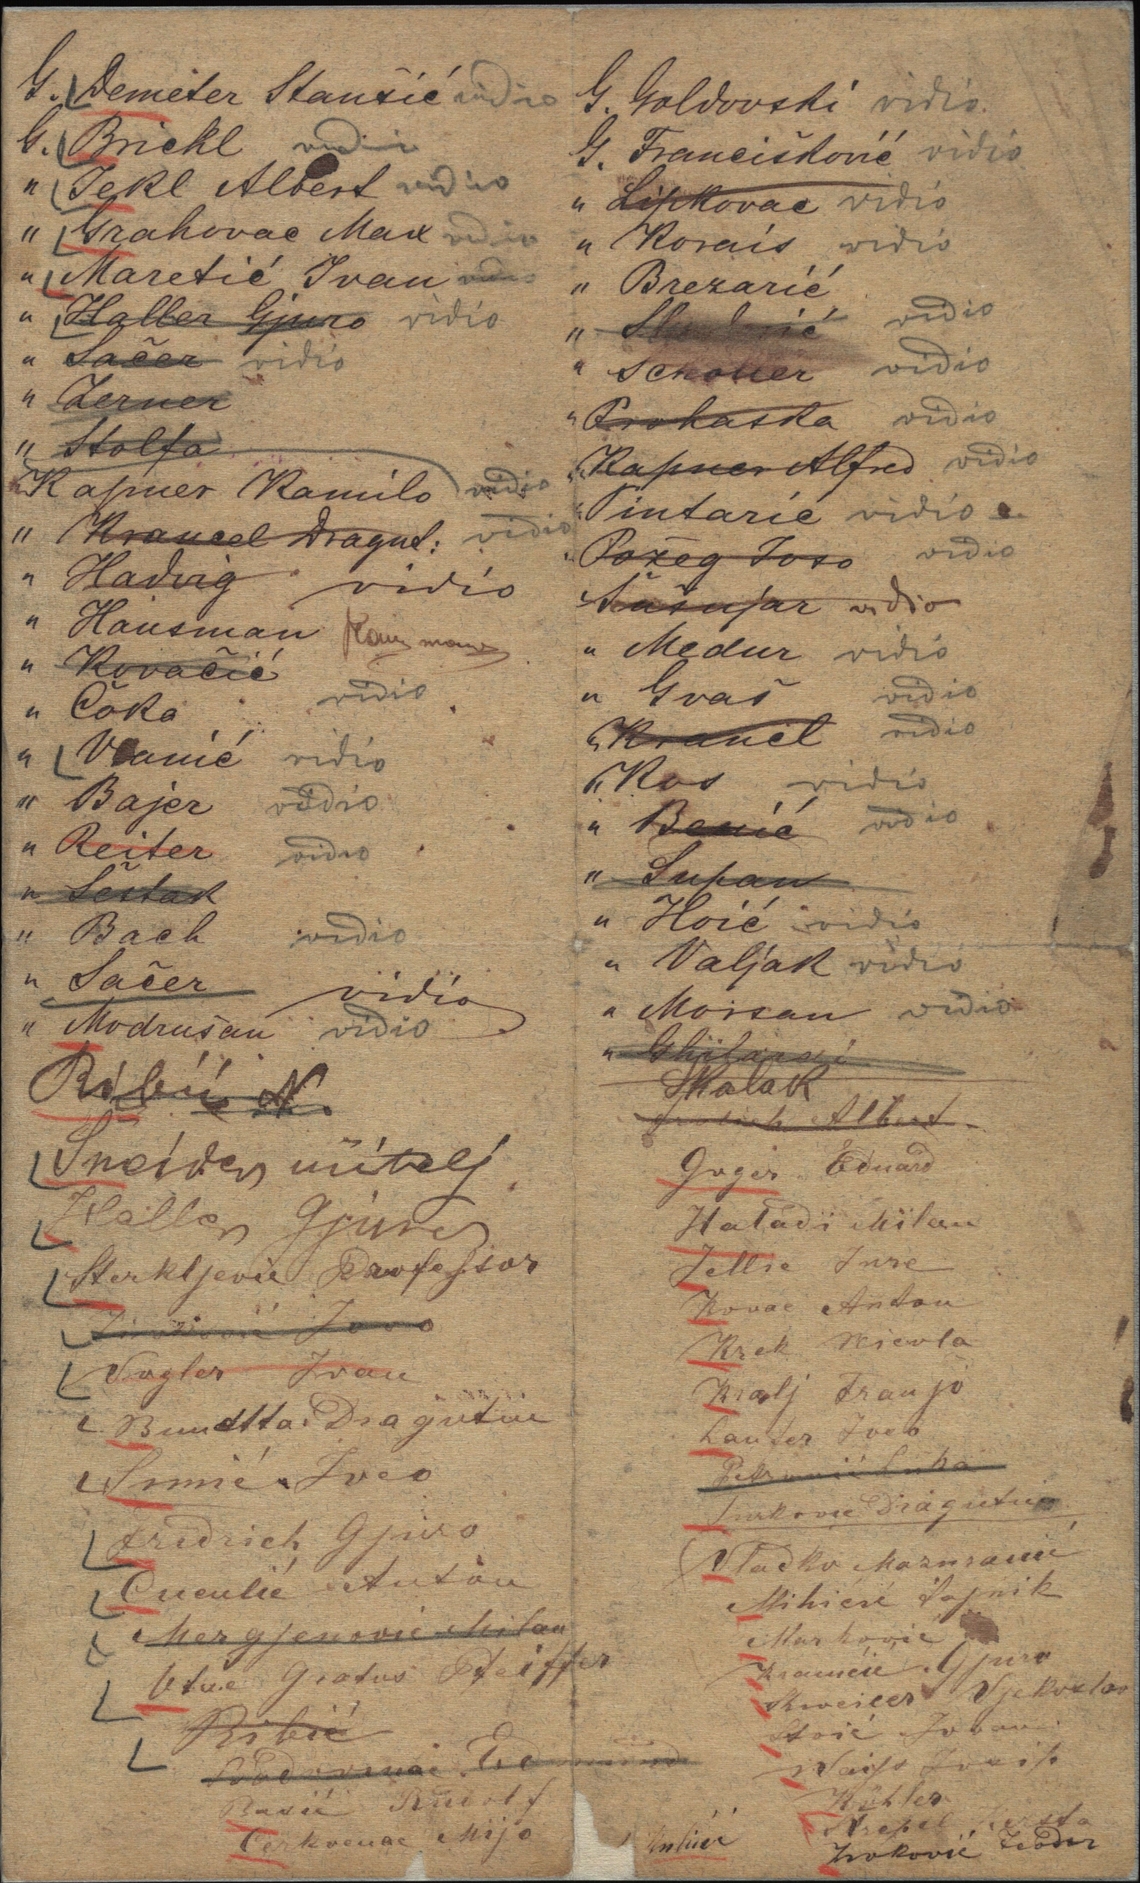 G. Demeter Stanšić vidio
G. Brickl vidio
" Jekl Albert vidio
" Grahovac Max vidio
" Maretić Ivan vidio
" Haller Gjuro vidio
" Sačer vidio
" Zerner
" Stolfa
Kapner Kamilo vidio
" Krancel Dragut: vidio
" Hadvig vidio
" Hausman
" Kovačić
" Čoka vidio
" Vranić vidio
" Bajer vidio
" Reiter vidio
" Šestak
" Bach vidio
" Sačer vidio
" Modrušan vidio
Ribić N.
Šneider učitelj
Haller Gjuro
Sterkljević Professor
Jovo
Vogler Ivan
Dragutin
Simić Iveo
Fridrich Gjuro
Cuculić Anton
Mergjenović Milan
Gratus Pfeiffer
Ribić
Rudolf
Cerkvenac Mijo
G. Goldovski vidio.
G. Francišković vidio
" Lipkovac vidio
" Korais vidio
" Brezarić
" vidio
" Schouer vidio
" Prohaska vidio
" Kapner Alfred vidio
" Pintarić vidio
" Požeg Joso vidio
Šušnjar vidio
" Medur vidio
" Gvaš vidio
" Krancil vidio
" Kos vidio
" Benić vidio
" Supan
" Hoić vidio
" Valjak vidio
" Morsan vidio
"
Skalak
Albert
Goger Eduard
Haladi Milan
Jellie Jure
Kovac Anton
Krek Nicola
Kralj Franjo
Lauter Iveo
Petrović Luka
Dragutin
Vladko Mazuranić
Mihicić
Marković
Kramčić Gjuro
Sweicer Vjekoslav
Stoić Jovan
Josip
Köhler
Strepel
Zivković Teodor